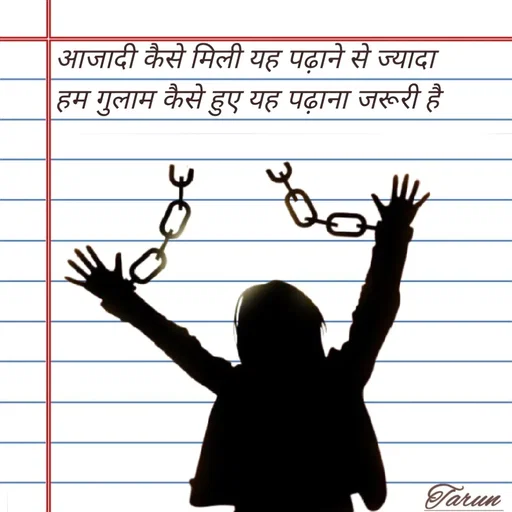 आजादी कैसे मिली यह पढ़ाने से ज्यादा
हम गुलाम कैसे हुए यह पढ़ाना जरूरी है
Tarun